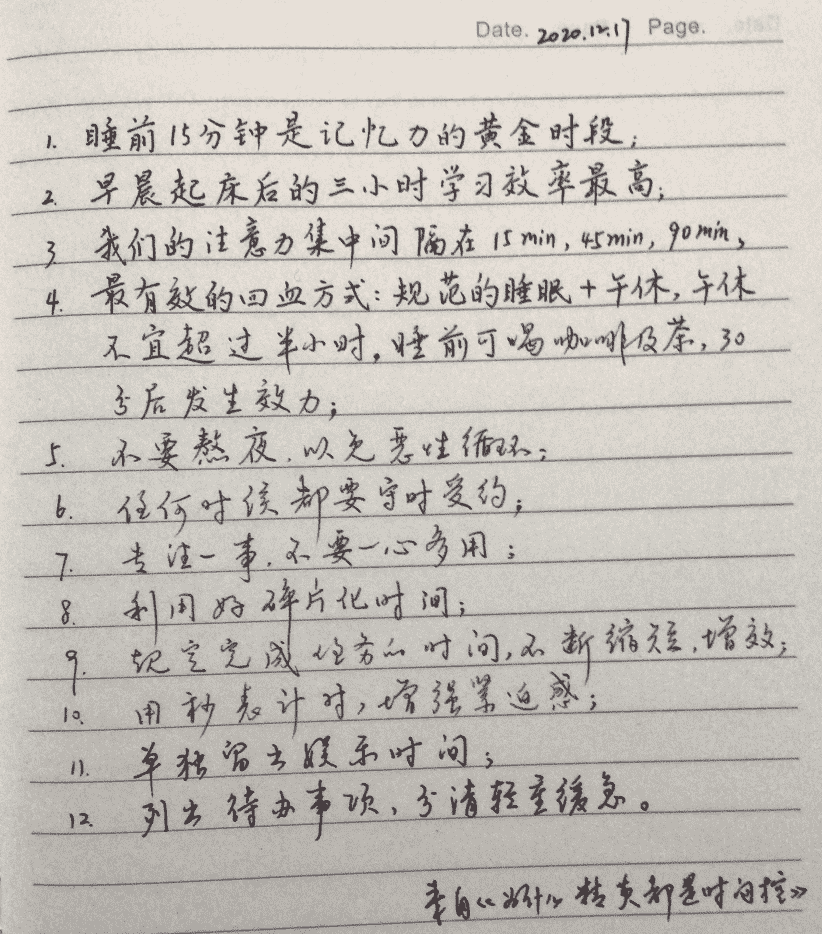 Date. 2020.12.17 Page.
1. 睡前15分钟是记忆力的黄金时段;
2. 早晨起床后的三小时学习效率最高;
3 我们的注意力集中间隔在 15min, 45min, 90min,
4. 最有效的回血方式:规范的睡眠+午休,午休
不宜超过半小时,睡前可喝咖啡及茶,30
分后发生效力;
5. 不要熬夜,以免恶性循环;
6. 任何时候都要守时受约;
7. 专注一事,不要一心多用;
8. 利用好碎片化时间;
9. 规定完成任务的时间,不断缩短,增效;
10. 用秒表计时,增强紧迫感;
11. 单独留出娱乐时间;
12. 列出待办事项,分清轻重缓急。
来自《为什么精英都是时间控》